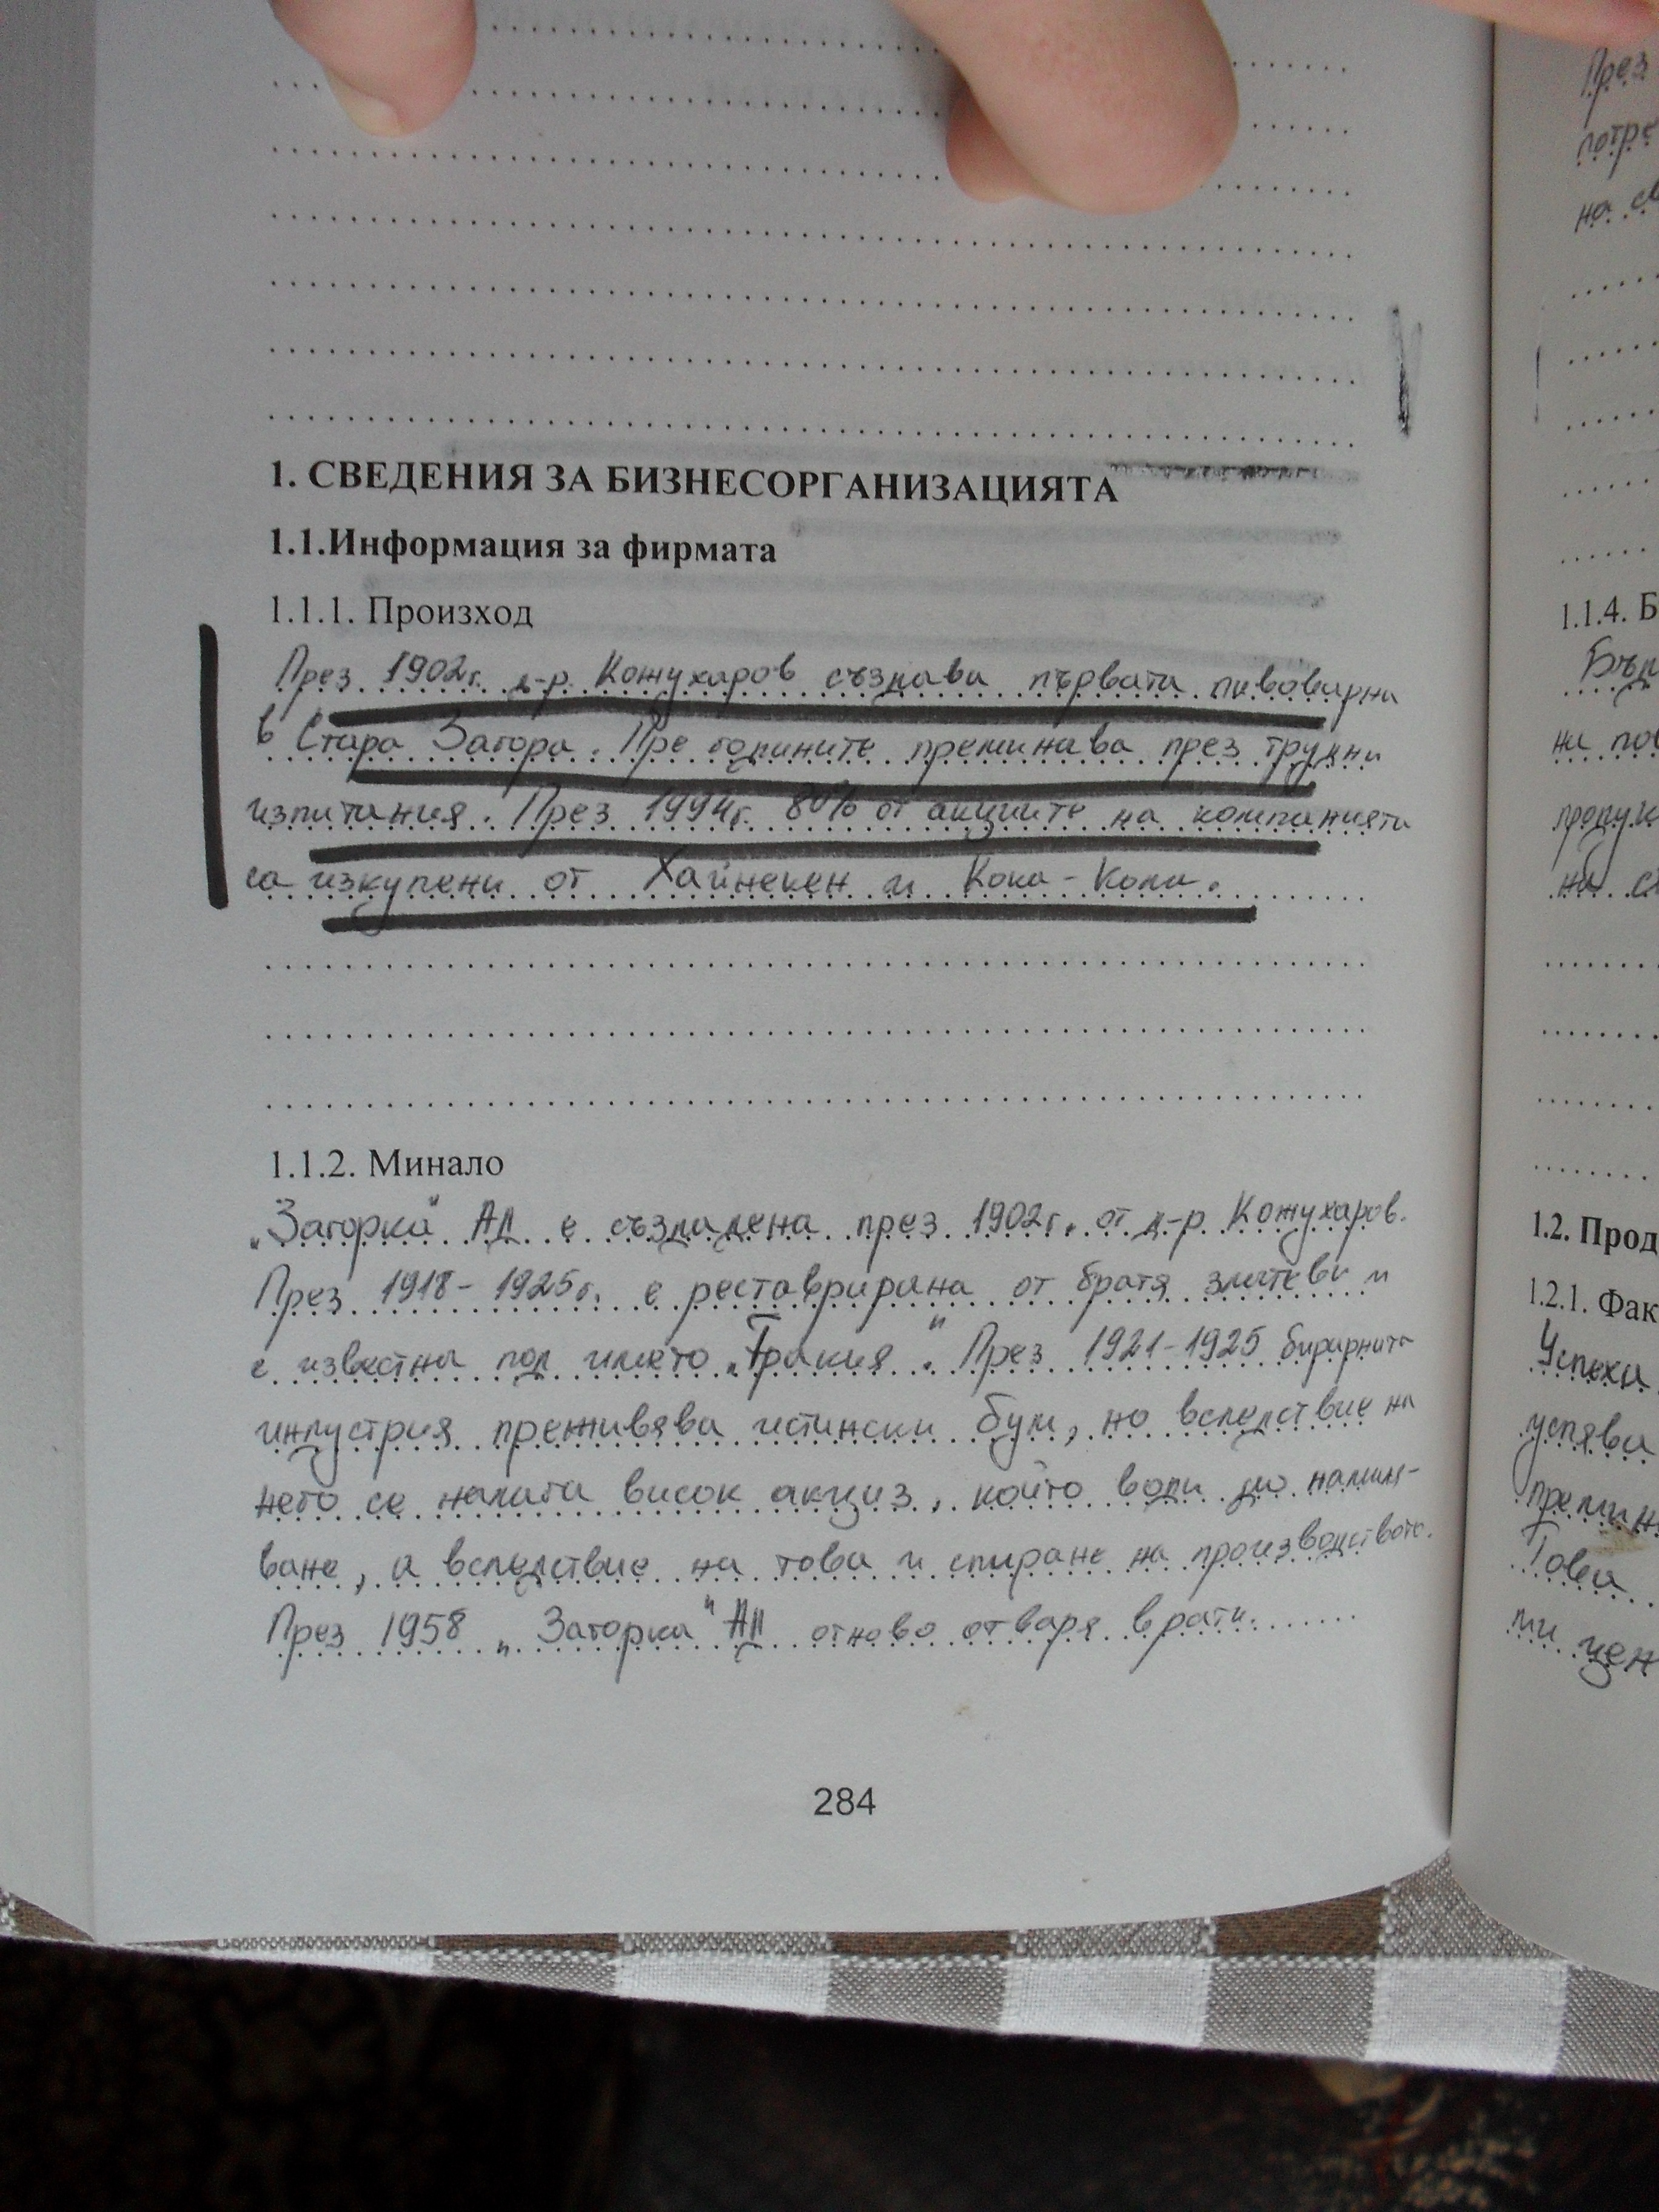 1. СВЕДЕНИЯ ЗА БИЗНЕСОРГАНИЗАЦИЯТА
1.1.Информация за фирмата
1.1.1. Произход
През 1902г. д-р. Кожухаров създава първата пивоварна
в Стара Загора. Пре годините преминава през трудни
изпитания. През 1994г. 80% от акциите на компанията
са изкупени от Хайнекен и Кока-Кола.
1.1.2. Минало
„Загорка" АД е създадена през 1902г. от д-р. Кожухаров.
През 1918-1925г. е реставрирана от братя златеви и
е известна под името „Тракия". През 1921-1925 бирарната
индустрия преживява истински бум, но вследствие на
него се налага висок акциз, който води до намаля-
ване, а вследствие на това и спиране на производството.
През 1958 „Загорка" АД отново отваря врати.
284
През
потре
на
1.1.4. Б
на
1.2. Прод
1.2.1. Фак
Успеха
успява
Това
цен